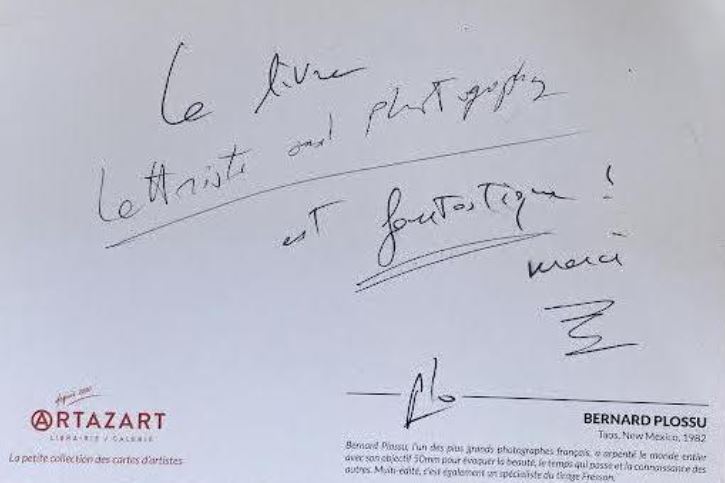 Le livre
Lettriste and photography
est fantastique !
merci
Plo
depuis 2000
ARTAZART
LIBRAIRIE / GALERIE
La petite collection des cartes d'artistes
BERNARD PLOSSU
Taos, New Mexico, 1982
Bernard Plossu, l'un des plus grands photographes français, a arpenté le monde entier
avec son objectif 50mm pour évoquer la beauté, le temps qui passe et la connaissance des
autres. Multi-édité, c'est également un spécialiste du tirage Fresson.